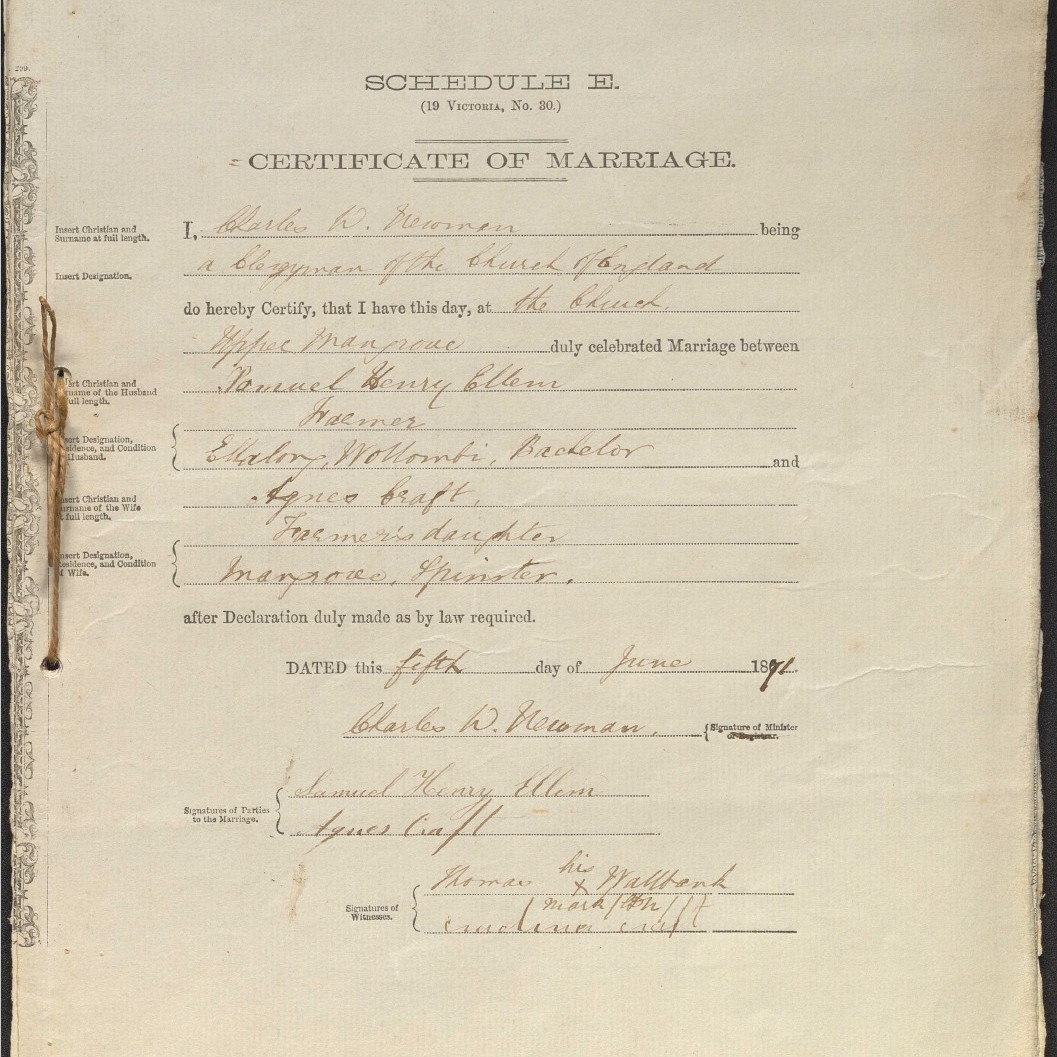 299.
SCHEDULE E.
(19 Victoria, No. 30.)
CERTIFICATE OF MARRIAGE.
Insert Christian and
Surname at full length.
I, Charles W. Newman being
Insert Designation.
a Clergyman of the Church of England
do hereby Certify, that I have this day, at the Church,
Upper Mangrove duly celebrated Marriage between
sert Christian and
urname of the Husband
full length.
Samuel Henry Ellem
Farmer
sert Designation,
esidence, and Condition
Husband.
Ellalong, Wollombi, Bachelor and
nsert Christian and
urname of the Wife
full length.
Agnes Craft,
Farmer's daughter
nsert Designation,
esidence, and Condition
f Wife.
Mangrove, Spinster,
after Declaration duly made as by law required.
DATED this fifth day of June 1871.
Charles W. Newman, Signature of Minister
or Registrar.
Signatures of Parties
to the Marriage.
Samuel Henry Ellem
Agnes Craft
Signatures of
Witnesses.
Thomas his x Wallbank
mark
Craft